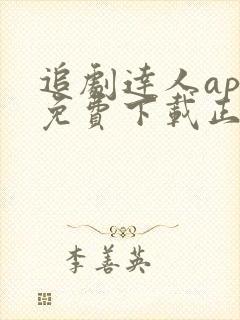 追劇達人ap
免費下載正
李善英